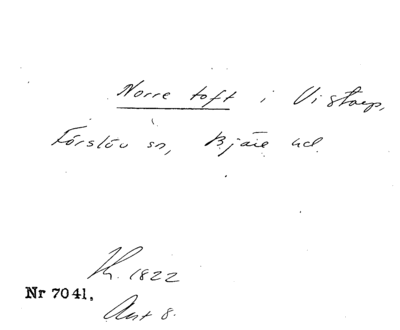 Norre toft i Vistorp,
Förslöv sn, Bjäre hd
H. 1822
Nr 7041.
Akt 8.